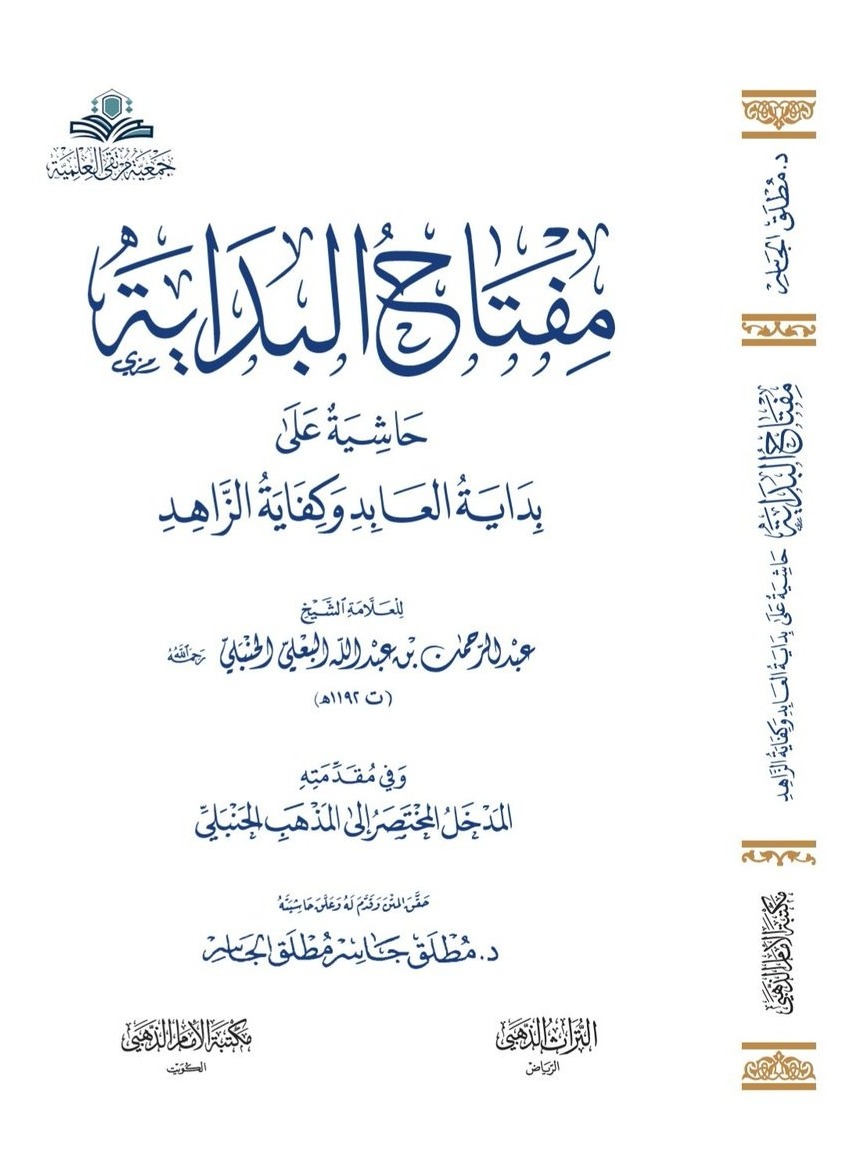 جمعية مرتقى العلمية
مِفْتَاحُ البِدَايَةِ
حَاشِيَةٌ عَلَى
بِدَايَةُ العَابِدِ وَكِفَايَةُ الزَّاهِدِ
لِلعَلَّامَةِ الشَّيْخِ
عَبْدِ الرَّحْمٰن بْن عَبْد اللّٰه البَعْلِيِّ الحَنْبَلِيِّ رَحِمَهُ اللَّهُ
(ت ١١٩٢هـ)
وَفِي مُقَدِّمَتِهِ
المَدْخَلُ المُخْتَصَرُ إِلَى المَذْهَبِ الحَنْبَلِيِّ
حَقَّقَ المَتْنَ وَقَدَّمَ لَهُ وَعَلَّقَ حَاشِيَتَهُ
د. مُطْلَق جَاسِر مُطْلَق الجَاسِر
التُّرَاث الذَّهَبِي
الرِّيَاض
مَكْتَبَةُ الإِمَامِ الذَّهَبِي
الكويت
د. مُطْلَق الجَاسِر
مِفْتَاحُ البِدَايَةِ
حَاشِيَةٌ عَلَى بِدَايَةُ العَابِدِ وَكِفَايَةُ الزَّاهِدِ
مَكْتَبَةُ الإِمَامِ الذَّهَبِي